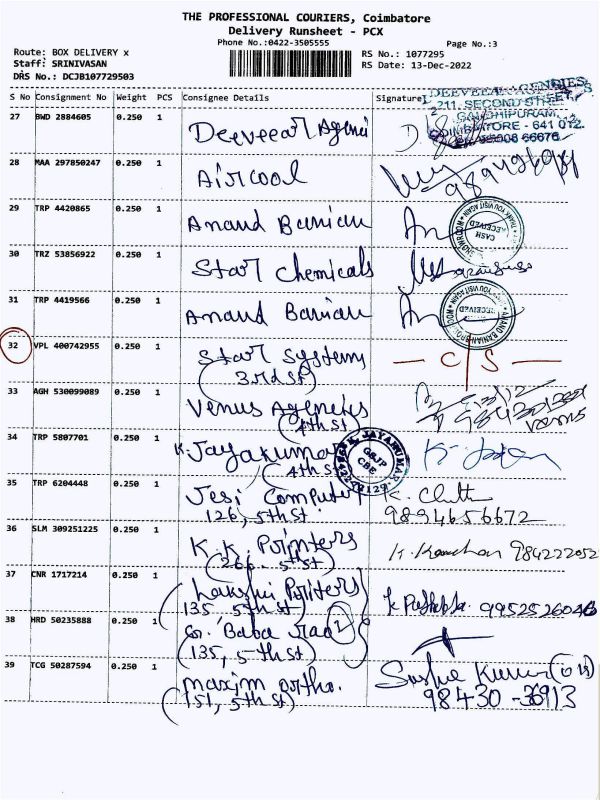 THE PROFESSIONAL COURIERS, Coimbatore
Delivery Runsheet - PCX
Phone No.:0422-3505555
Page No.:3
Route: BOX DELIVERY x
RS No.: 1077295
Staff: SRINIVASAN
RS Date: 13-Dec-2022
DRS No.: DCJB107729503
S No Consignment No Weight PCS Consignee Details Signature
DEEVEEAR AGENCIES
211, SECOND STREET,
GANDHIPURAM,
COIMBATORE - 641 012.
27 BWD 2884605 0.250 1 Deeveear Agenci
28 MAA 297850247 0.250 1 Aircool
29 TRP 4420865 0.250 1 Anand Banian
CASH
RECEIVED
THANK YOU VISIT AGAIN
30 TRZ 53856922 0.250 1 Star Chemicals
31 TRP 4419566 0.250 1 Anand Banian
RECEIVED
THANK YOU VISIT AGAIN
ANAND BANIAN
32 VPL 400742955 0.250 1 Star Systems C/S
(3rd st)
33 AGH 530099089 0.250 1 Venus Agencies
(4th st)
34 TRP 5807701 0.250 1 K. Jayakumar
(4th st)
K. JAYAKUMAR
GSJP
CBE
35 TRP 6204448 0.250 1 Jesi Computer
126, 5th st
9894656672
36 SLM 309251225 0.250 1 K. K. Printers
(266. 5th st)
37 CNR 1717214 0.250 1 Lakshmi Printers
135. 5th st)
38 HRD 50235888 0.250 1 Sri. Baba Trad 2
(135, 5th st)
39 TCG 50287594 0.250 1 Maxim ortho.
(151, 5th st)
98430-36913